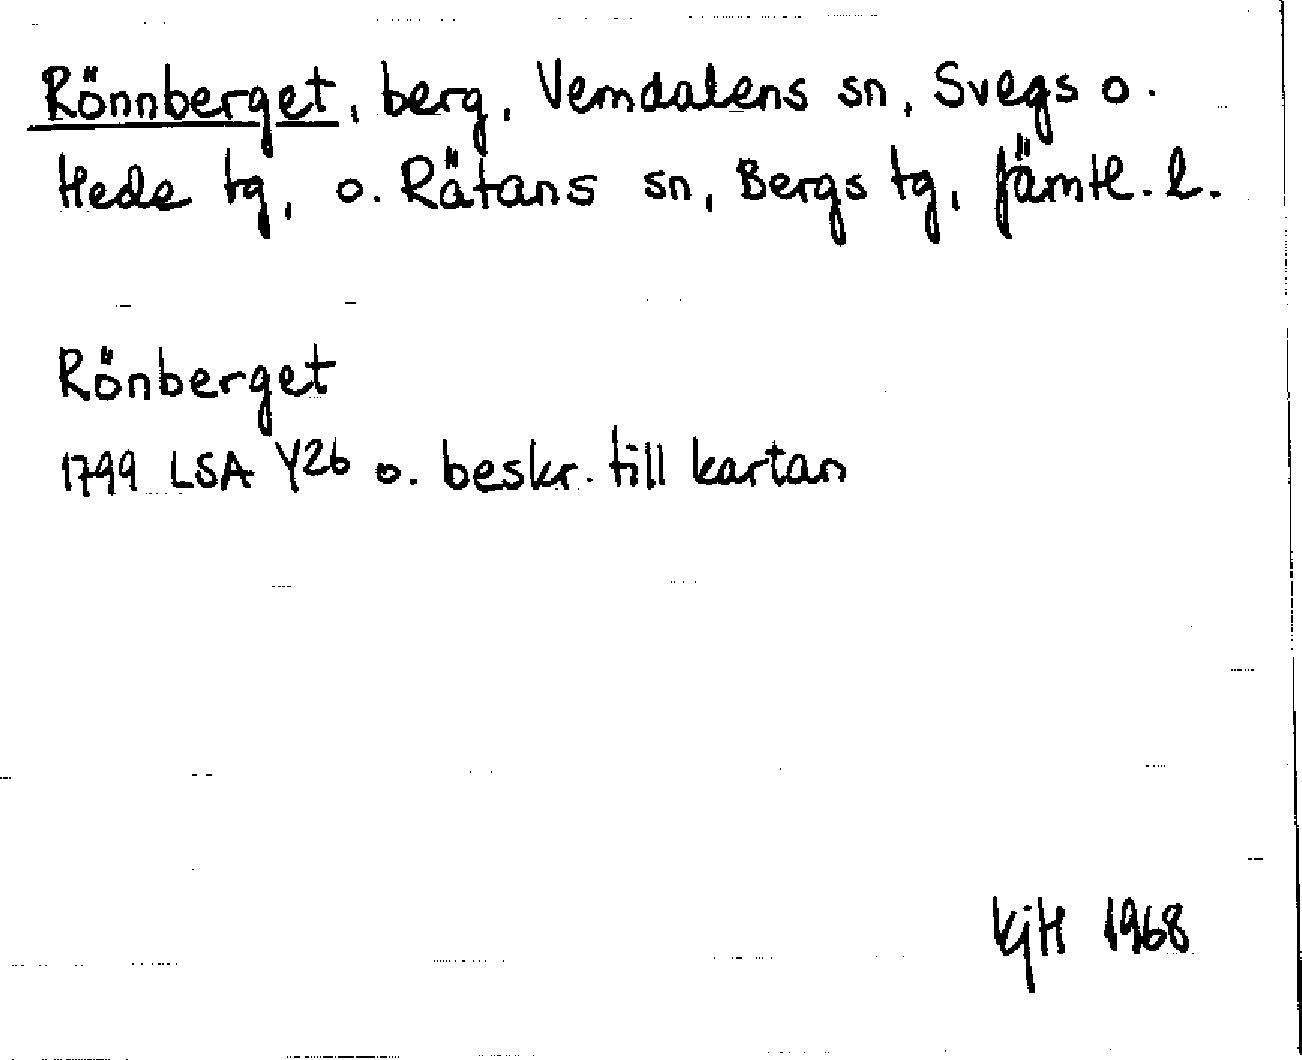 Rönnberget, berg, Vemdalens sn, Svegs o.
Hede tg, o. Rätans sn, Bergs tg, Jämtl. l.
Rönberget
1799 LSA Y26 o. beskr. till kartan
KjH 1968